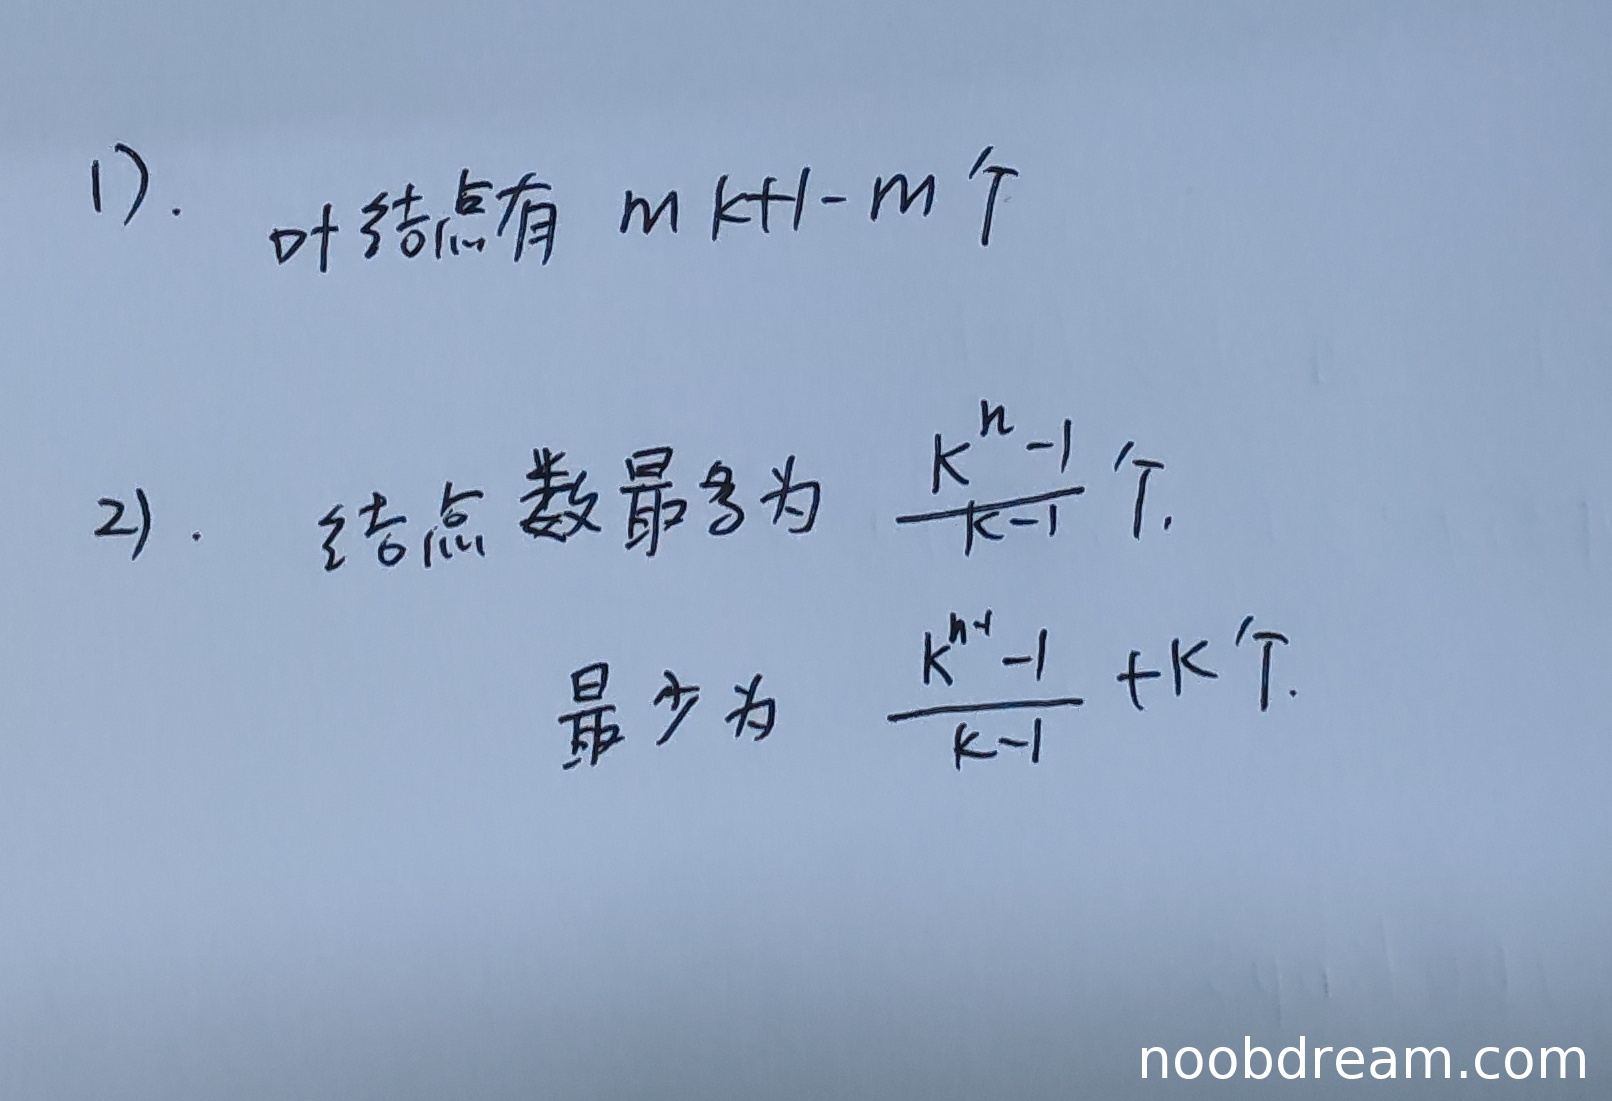 1). 叶结点有 mk+1-m个
2). 结点数最多为 \frac{k^n-1}{k-1} 个.
最少为 \frac{k^{n-1}-1}{k-1} +k个.
noobdream.com